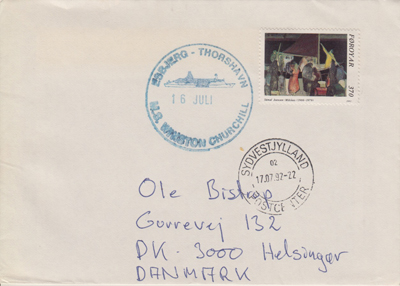 ESBJERG - THORSHAVN
16 JULI
M.S. WINSTON CHURCHILL
FØROYAR
370
SYDVESTJYLLAND
02
17.07.97-22
POSTCENTER
Ole Bishop
Gurrevej 132
DK-3000 Helsingør
DANMARK